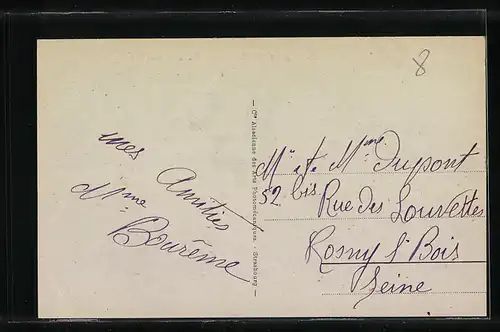 8
mes
Amitiés
Mme
Bourême
— Cie Alsacienne des Arts Photomécaniques, Strasbourg —
Mr et Mme Dupont
52 bis Rue des Louvettes
Rosny s/ Bois
Seine